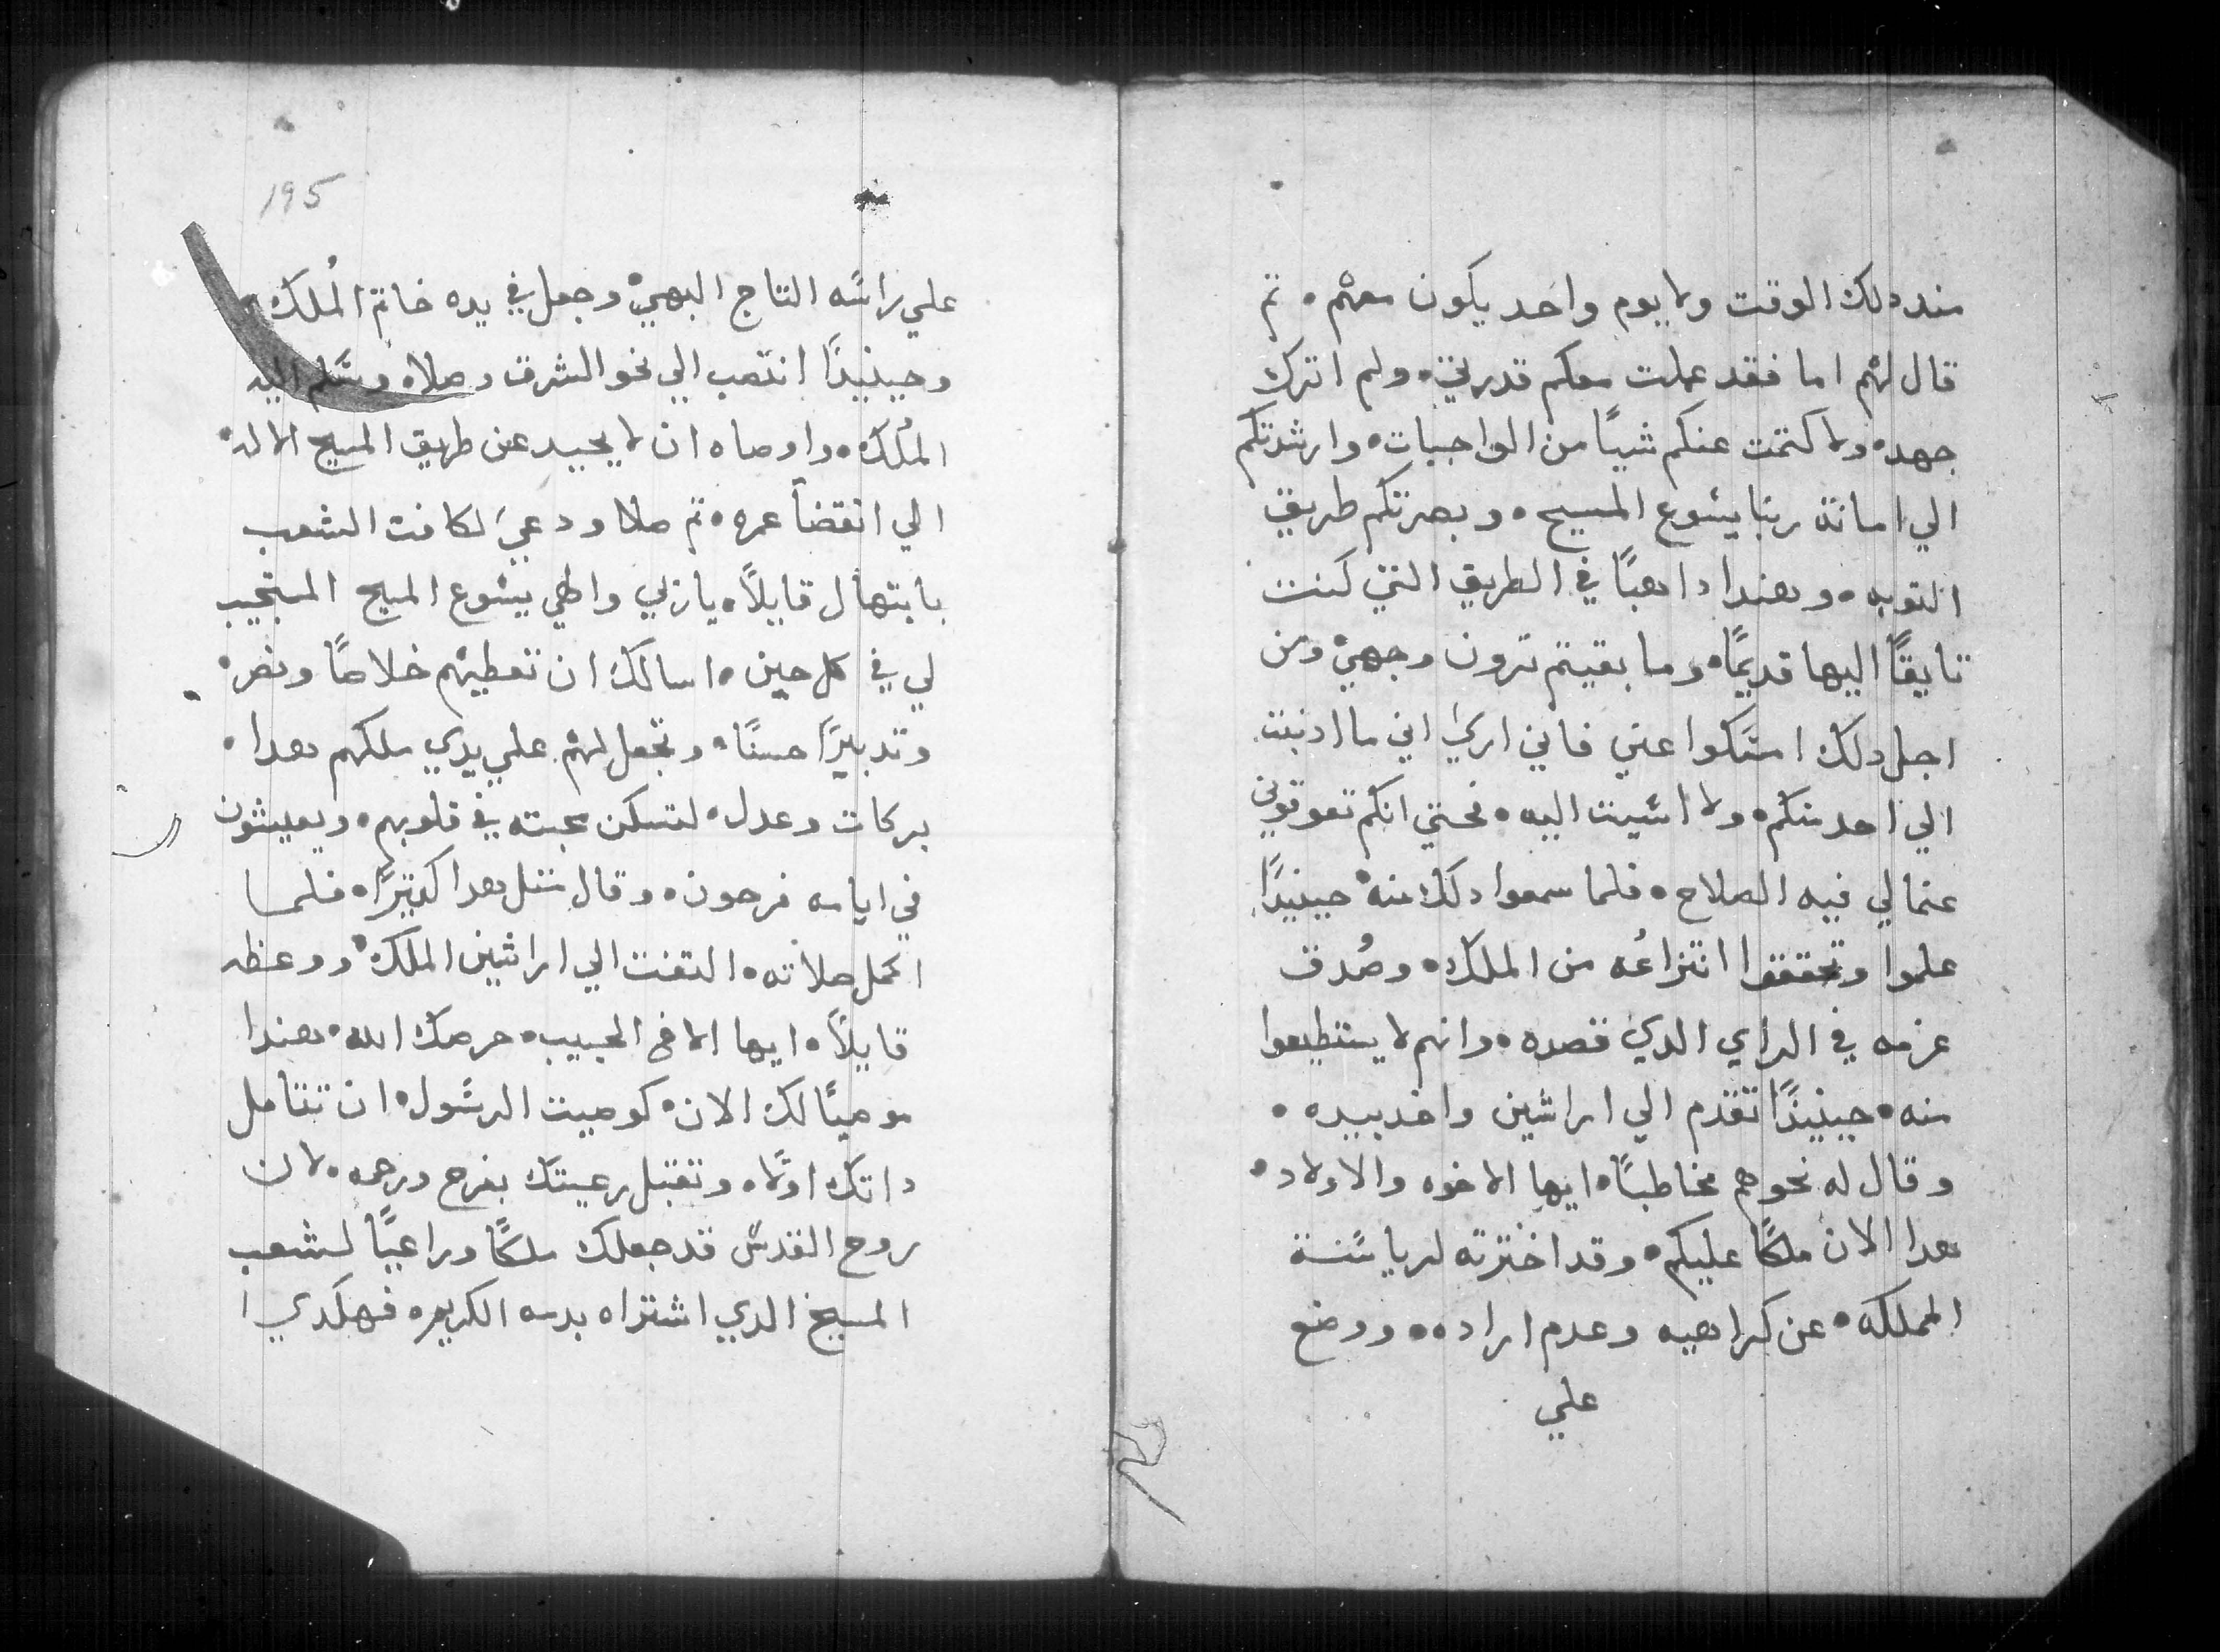 مند دلك الوقت ولا يوم واحد يكون معهم • تم
قال لهم اما فقد عملت معكم قدرتي • ولم اترك
جهد • ولا كتمت عنكم شيياً من الواجبات • وارشدتكم
الي امانة ربنا يسوع المسيح • وبصرتكم طريق
التوبه • وهندا داهباً في الطريق التي كنت
تايقاً اليها قديماً • وما بقيتم ترون وجهي • ومن
اجل دلك امسكوا عني فاني اري اني ما ادنبت
الي احد منكم • ولا اسيت اليه • فحتي انكم تعوقوني
عنما لي فيه الصلاح • فلما سمعوا دلك منه • حينيداً
علموا وتحققوا انتزاعُه من الملك • وصُدق
عزمه في الراي الدي قصده • وانهم لا يستطيعوا
منه • حينيداً تقدم الي اراشين واخد بيده •
وقال له نحوهم مخاطباً • ايها الاخوه والاولاد •
هدا الان ملكاً عليكم • وقد اخترته لرياسة
المملكه • عن كراهيه وعدم اراده • • ووضع
علي
195
علي راسه التاج البهي • وجعل في يده خاتم المُلك •
وحينيداً انتصب الي نحو الشرق وصلاه وسلم اليه
الملك • واوصاه ان لا يحيد عن طريق المسيح الاله •
الي انقضاَ عمره • تم صلا ودعي لكافت الشعب
بابتهال قايلاً • يا ربي والهي يسوع المسيح المستجيب
لي في كل حين • اسالك ان تعطيهم خلاصاً ونصر •
وتدبيراً حسناً • وتجعل لهم علي يدي ملكهم هدا •
بركات وعدل • لتسكن محبته في قلوبهم • ويعيشون
في ايامه فرحون • وقال متل هدا كتيراً • فلما
اكمل صلاته • التفت الي اراشين الملك • ووعظه
قايلاً • ايها الاخ الحبيب • حرصك الله • هندا
موصياً لك الان • كوصيت الرسول • ان تتامل
داتك اولاً • وتقبل رعيتك بفرح ورحمه • لان
روح القدس قد جعلك ملكاً وراعياً لشعب
المسيح الدي اشتراه بدمه الكريم • فهكدي ا